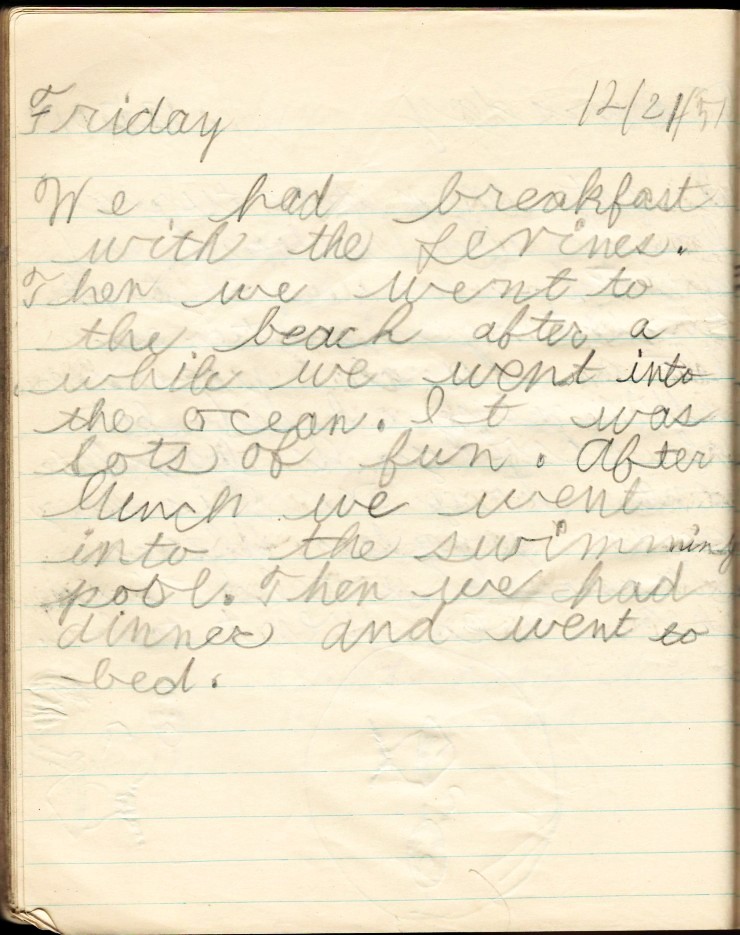 Friday 12/21/51
We had breakfast
with the Levines.
Then we went to
the beach after a
while we went into
the ocean. It was
lots of fun. After
lunch we went
into the swimming
pool. Then we had
dinner and went to
bed.